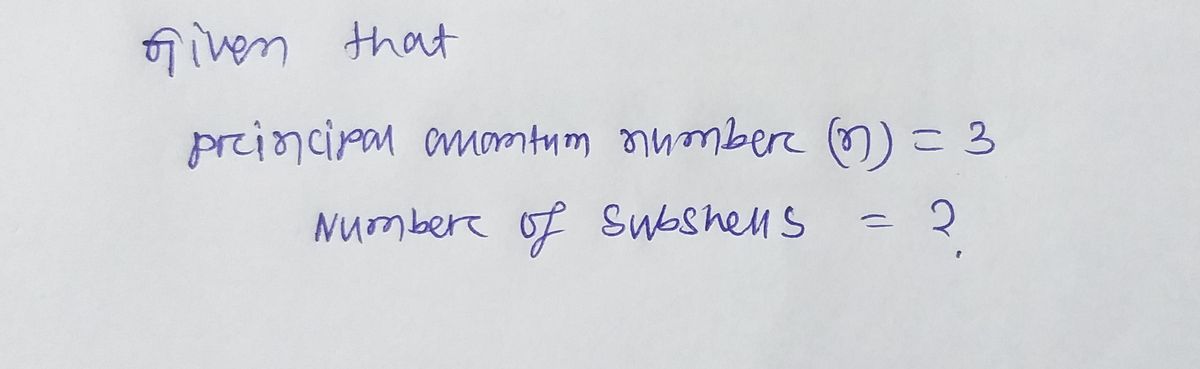 Given that
principal quantum number (n) = 3
Number of subshells = ?